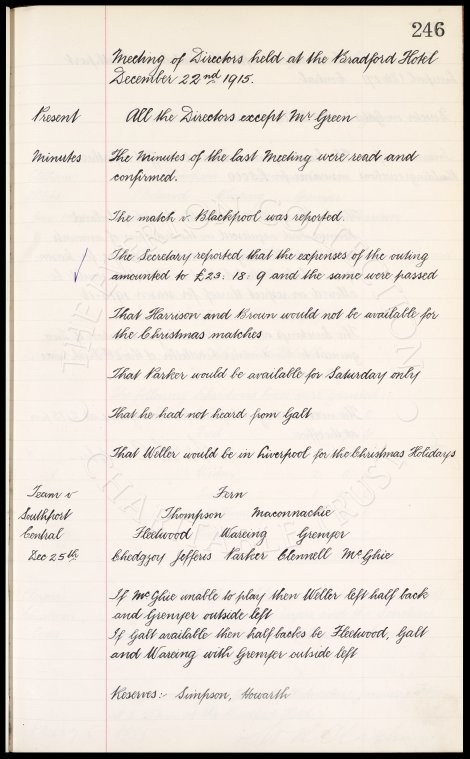 246
Meeting of Directors held at the Bradford Hotel
December 22nd 1915.
Present All the Directors except Mr Green
Minutes The Minutes of the last Meeting were read and
confirmed.
The match v. Blackpool was reported.
The Secretary reported that the expenses of the outing
amounted to £23:18:9 and the same were passed
That Harrison and Brown would not be available for
the Christmas matches
That Parker would be available for Saturday only
That he had not heard from Galt
That Weller would be in Liverpool for the Christmas Holidays
Team v Fern
Southport Thompson Maconnachie
Central Fleetwood Wareing Grenyer
Dec 25th Chedgzoy Jefferis Parker Clennell McGhie
If McGhie unable to play then Weller left half back
and Grenyer outside left
If Galt available then half backs be Fleetwood, Galt
and Wareing with Grenyer outside left
Reserves:- Simpson, Howarth